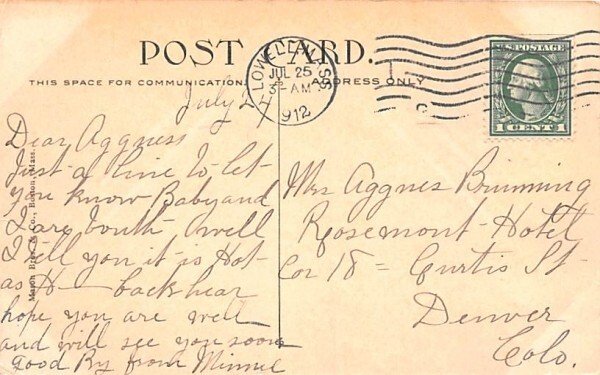 POST CARD.
THIS SPACE FOR COMMUNICATION. ADDRESS ONLY
LOWELL, MASS.
JUL 25
3-AM
1912
U.S. POSTAGE
1 CENT 1
July 2
Dear Aggness
Just a line to let
you know Baby and
I are bouth well
I tell you it is Hot
as H- back hear
hope you are well
and will see you soon
good By from Minnie
Mrs Aggnes Brinming
Rosemont - Hotel
Cor 18 = Curtis St -
Denver
Colo.
Mason Bros. & Co., Boston, Mass.